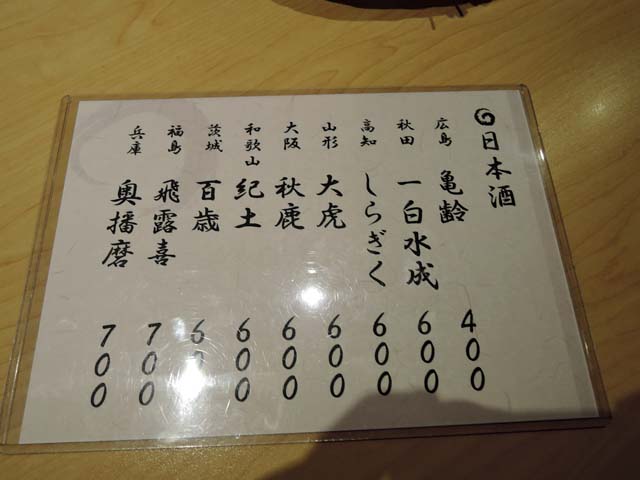 日本酒
広島 亀齢 400
秋田 一白水成 600
高知 しらぎく 600
山形 大虎 600
大阪 秋鹿 600
和歌山 紀土 600
茨城 百歳 600
福島 飛露喜 700
兵庫 奥播磨 700